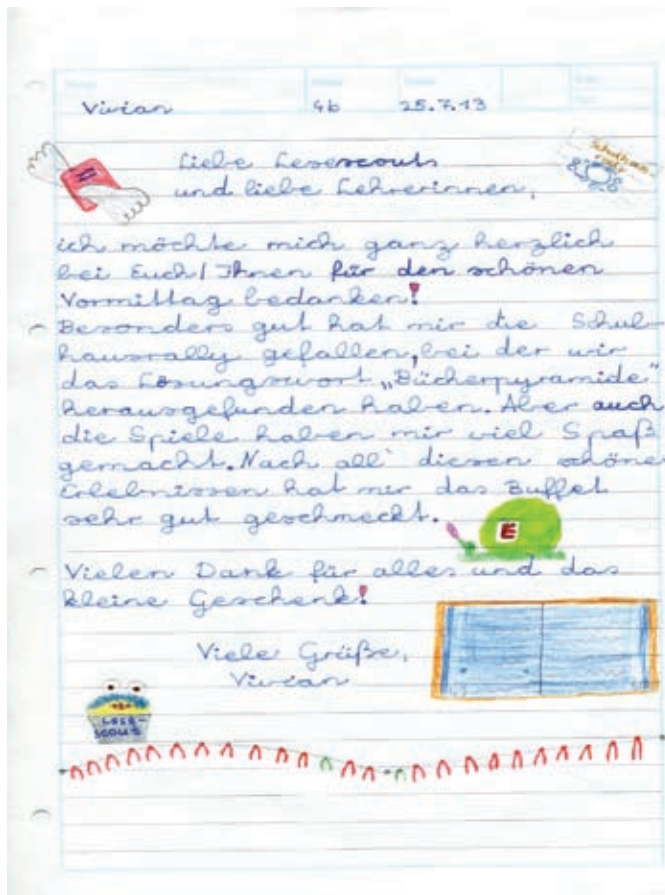 Vivian 4b 25.7.13
Liebe Lesescouts
und liebe Lehrerinnen,
ich möchte mich ganz herzlich
bei Euch/Ihnen für den schönen
Vormittag bedanken!
Besonders gut hat mir die Schul-
hausrally gefallen, bei der wir
das Lösungswort „Bücherpyramide"
herausgefunden haben. Aber auch
die Spiele haben mir viel Spaß
gemacht. Nach all' diesen schöne
Erlebnissen hat mir das Buffet
sehr gut geschmeckt.
E
Vielen Dank für alles und das
kleine Geschenk!
Viele Grüße,
Vivian
Lese-
scout